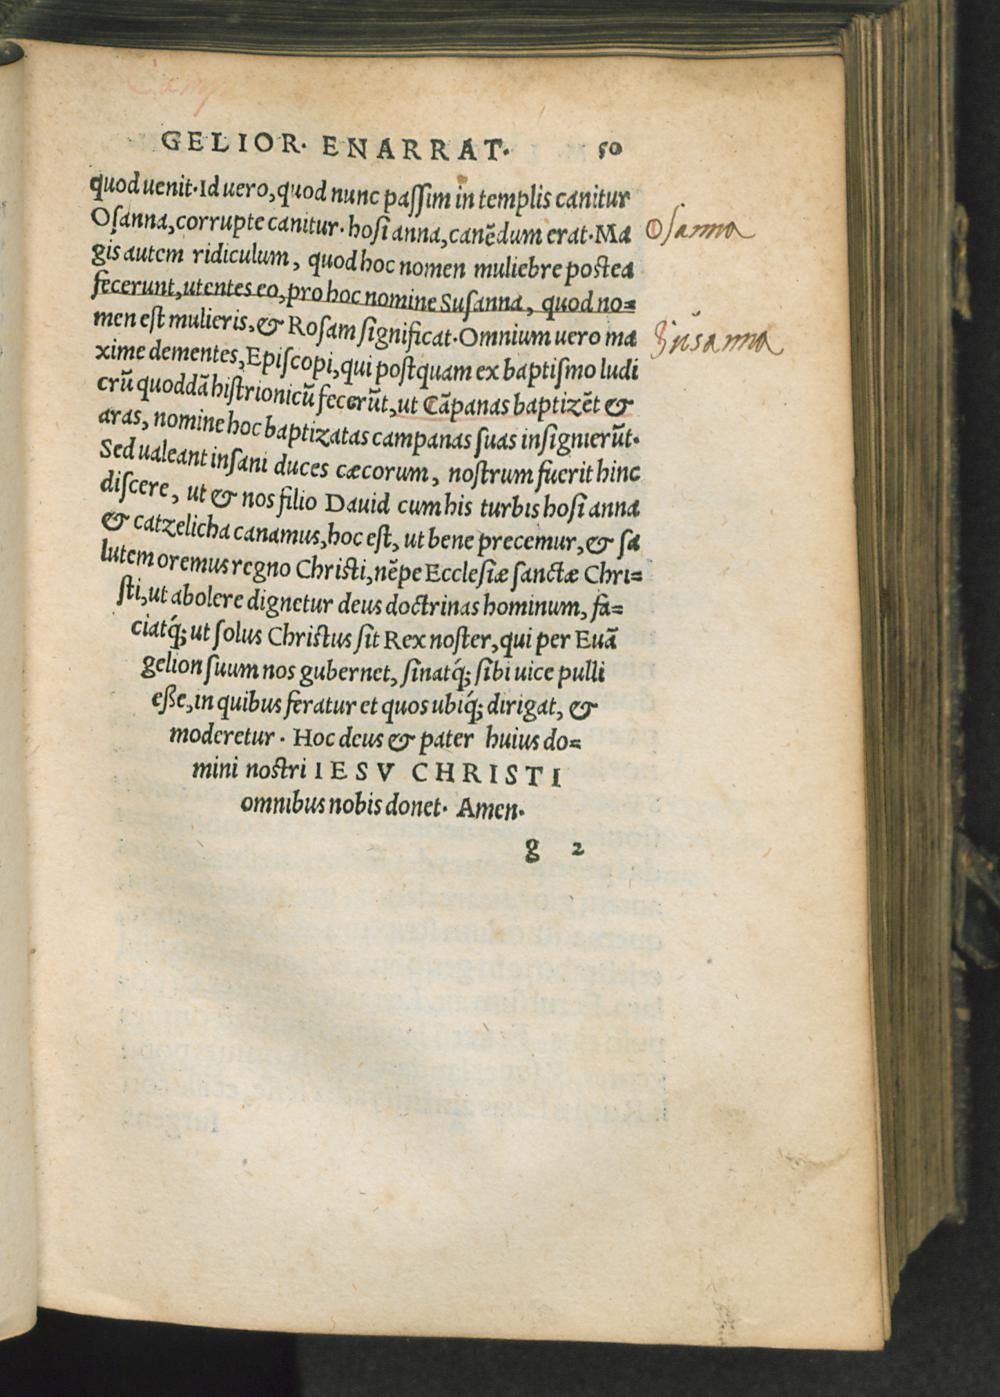 GELIOR· ENARRAT· 50
quod uenit·Id uero,quod nunc paſſim in templis canitur
Oſanna,corrupte canitur·hoſi anna,canẽdum erat·Ma
Oſanna
gis autem ridiculum, quod hoc nomen muliebre postea
fecerunt,utentes eo,pro hoc nomine Susanna, quod no=
men est mulieris,& Rosam ſignificat·Omnium uero ma
Susanna
xime dementes,Epiſcopi,qui postquam ex baptiſmo ludi
crũ quoddã histrionicũ fecerũt,ut Cãpanas baptizẽt &
aras, nomine hoc baptizatas campanas ſuas inſignierũt·
Sed ualeant inſani duces cæcorum, nostrum fuerit hinc
diſcere, ut & nos filio Dauid cum his turbis hoſi anna
& catzelicha canamus,hoc est, ut bene precemur,& ſa
lutem oremus regno Christi,nẽpe Eccleſiæ ſanctæ Chri=
sti,ut abolere dignetur deus doctrinas hominum, fa=
ciatq́; ut ſolus Christus ſit Rex noster,qui per Euã
gelion ſuum nos gubernet, ſinatq́; ſibi uice pulli
eße,in quibus feratur et quos ubiq́; dirigat, &
moderetur· Hoc deus & pater huius do=
mini nostri IESV CHRISTI
omnibus nobis donet· Amen·
g 2